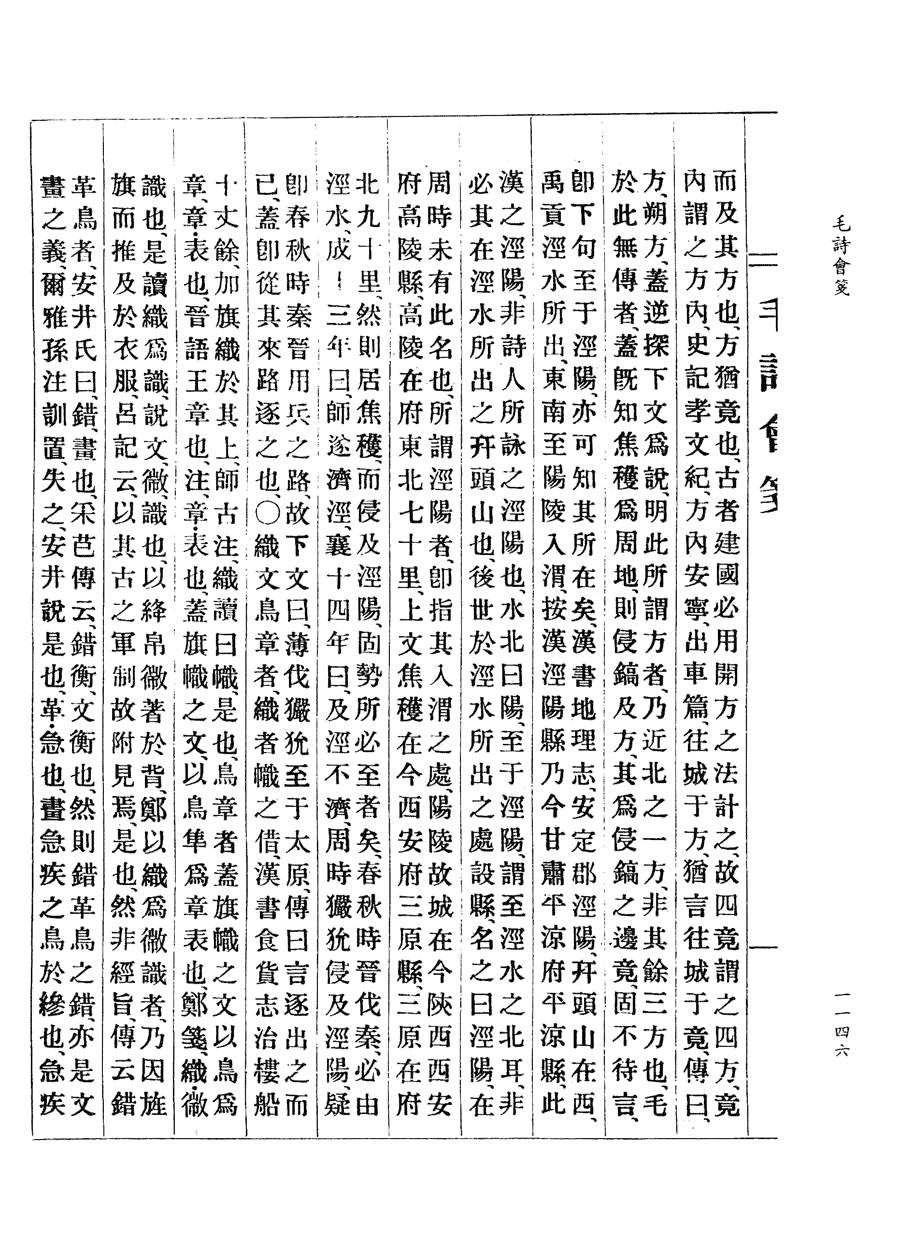 毛詩會箋
一一四六
毛詩會箋
而及其方也、方猶竟也、古者建國必用開方之法計之、故四竟謂之四方、竟
內謂之方內、史記孝文紀、方內安寧、出車篇、往城于方、猶言往城于竟、傳曰、
方、朔方、蓋逆探下文爲說、明此所謂方者、乃近北之一方、非其餘三方也、毛
於此無傳者、蓋旣知焦穫爲周地、則侵鎬及方、其爲侵鎬之邊竟、固不待言、
卽下句至于涇陽、亦可知其所在矣、漢書地理志、安定郡涇陽、幵頭山在西、
禹貢涇水所出、東南至陽陵入渭、按漢涇陽縣乃今甘肅平涼府平涼縣、此
漢之涇陽、非詩人所詠之涇陽也、水北曰陽、至于涇陽、謂至涇水之北耳、非
必其在涇水所出之幵頭山也、後世於涇水所出之處設縣、名之曰涇陽、在
周時未有此名也、所謂涇陽者、卽指其入渭之處、陽陵故城在今陝西西安
府高陵縣、高陵在府東北七十里、上文焦穫在今西安府三原縣、三原在府
北九十里、然則居焦穫、而侵及涇陽、固勢所必至者矣、春秋時晉伐秦、必由
涇水、成十三年曰、師遂濟涇、襄十四年曰、及涇不濟、周時玁狁侵及涇陽、疑
卽春秋時秦晉用兵之路、故下文曰、薄伐玁狁至于太原、傳曰言逐出之而
已、蓋卽從其來路逐之也、〇織文鳥章者、織者幟之借、漢書食貨志治樓船
十丈餘加旗織於其上、師古注、織讀曰幟、是也、鳥章者蓋旗幟之文以鳥爲
章、章・表也、晉語王章也、注、章・表也、蓋旗幟之文、以鳥隼爲章表也、鄭箋、織・徽
識也、是讀織爲識、說文、徽、識也、以絳帛徽著於背、鄭以織爲徽識者、乃因旌
旗而推及於衣服、呂記云、以其古之軍制故附見焉、是也、然非經旨、傳云錯
革鳥者、安井氏曰、錯・畫也、采芑傳云、錯衡、文衡也、然則錯革鳥之錯、亦是文
畫之義、爾雅孫注訓置、失之、安井說是也、革・急也、畫急疾之鳥於縿也、急疾